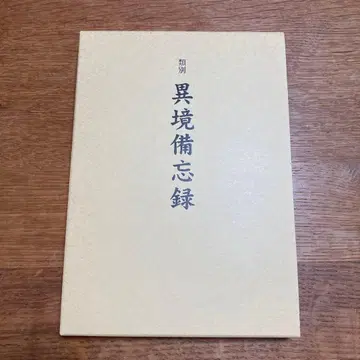 類別
異境備忘録